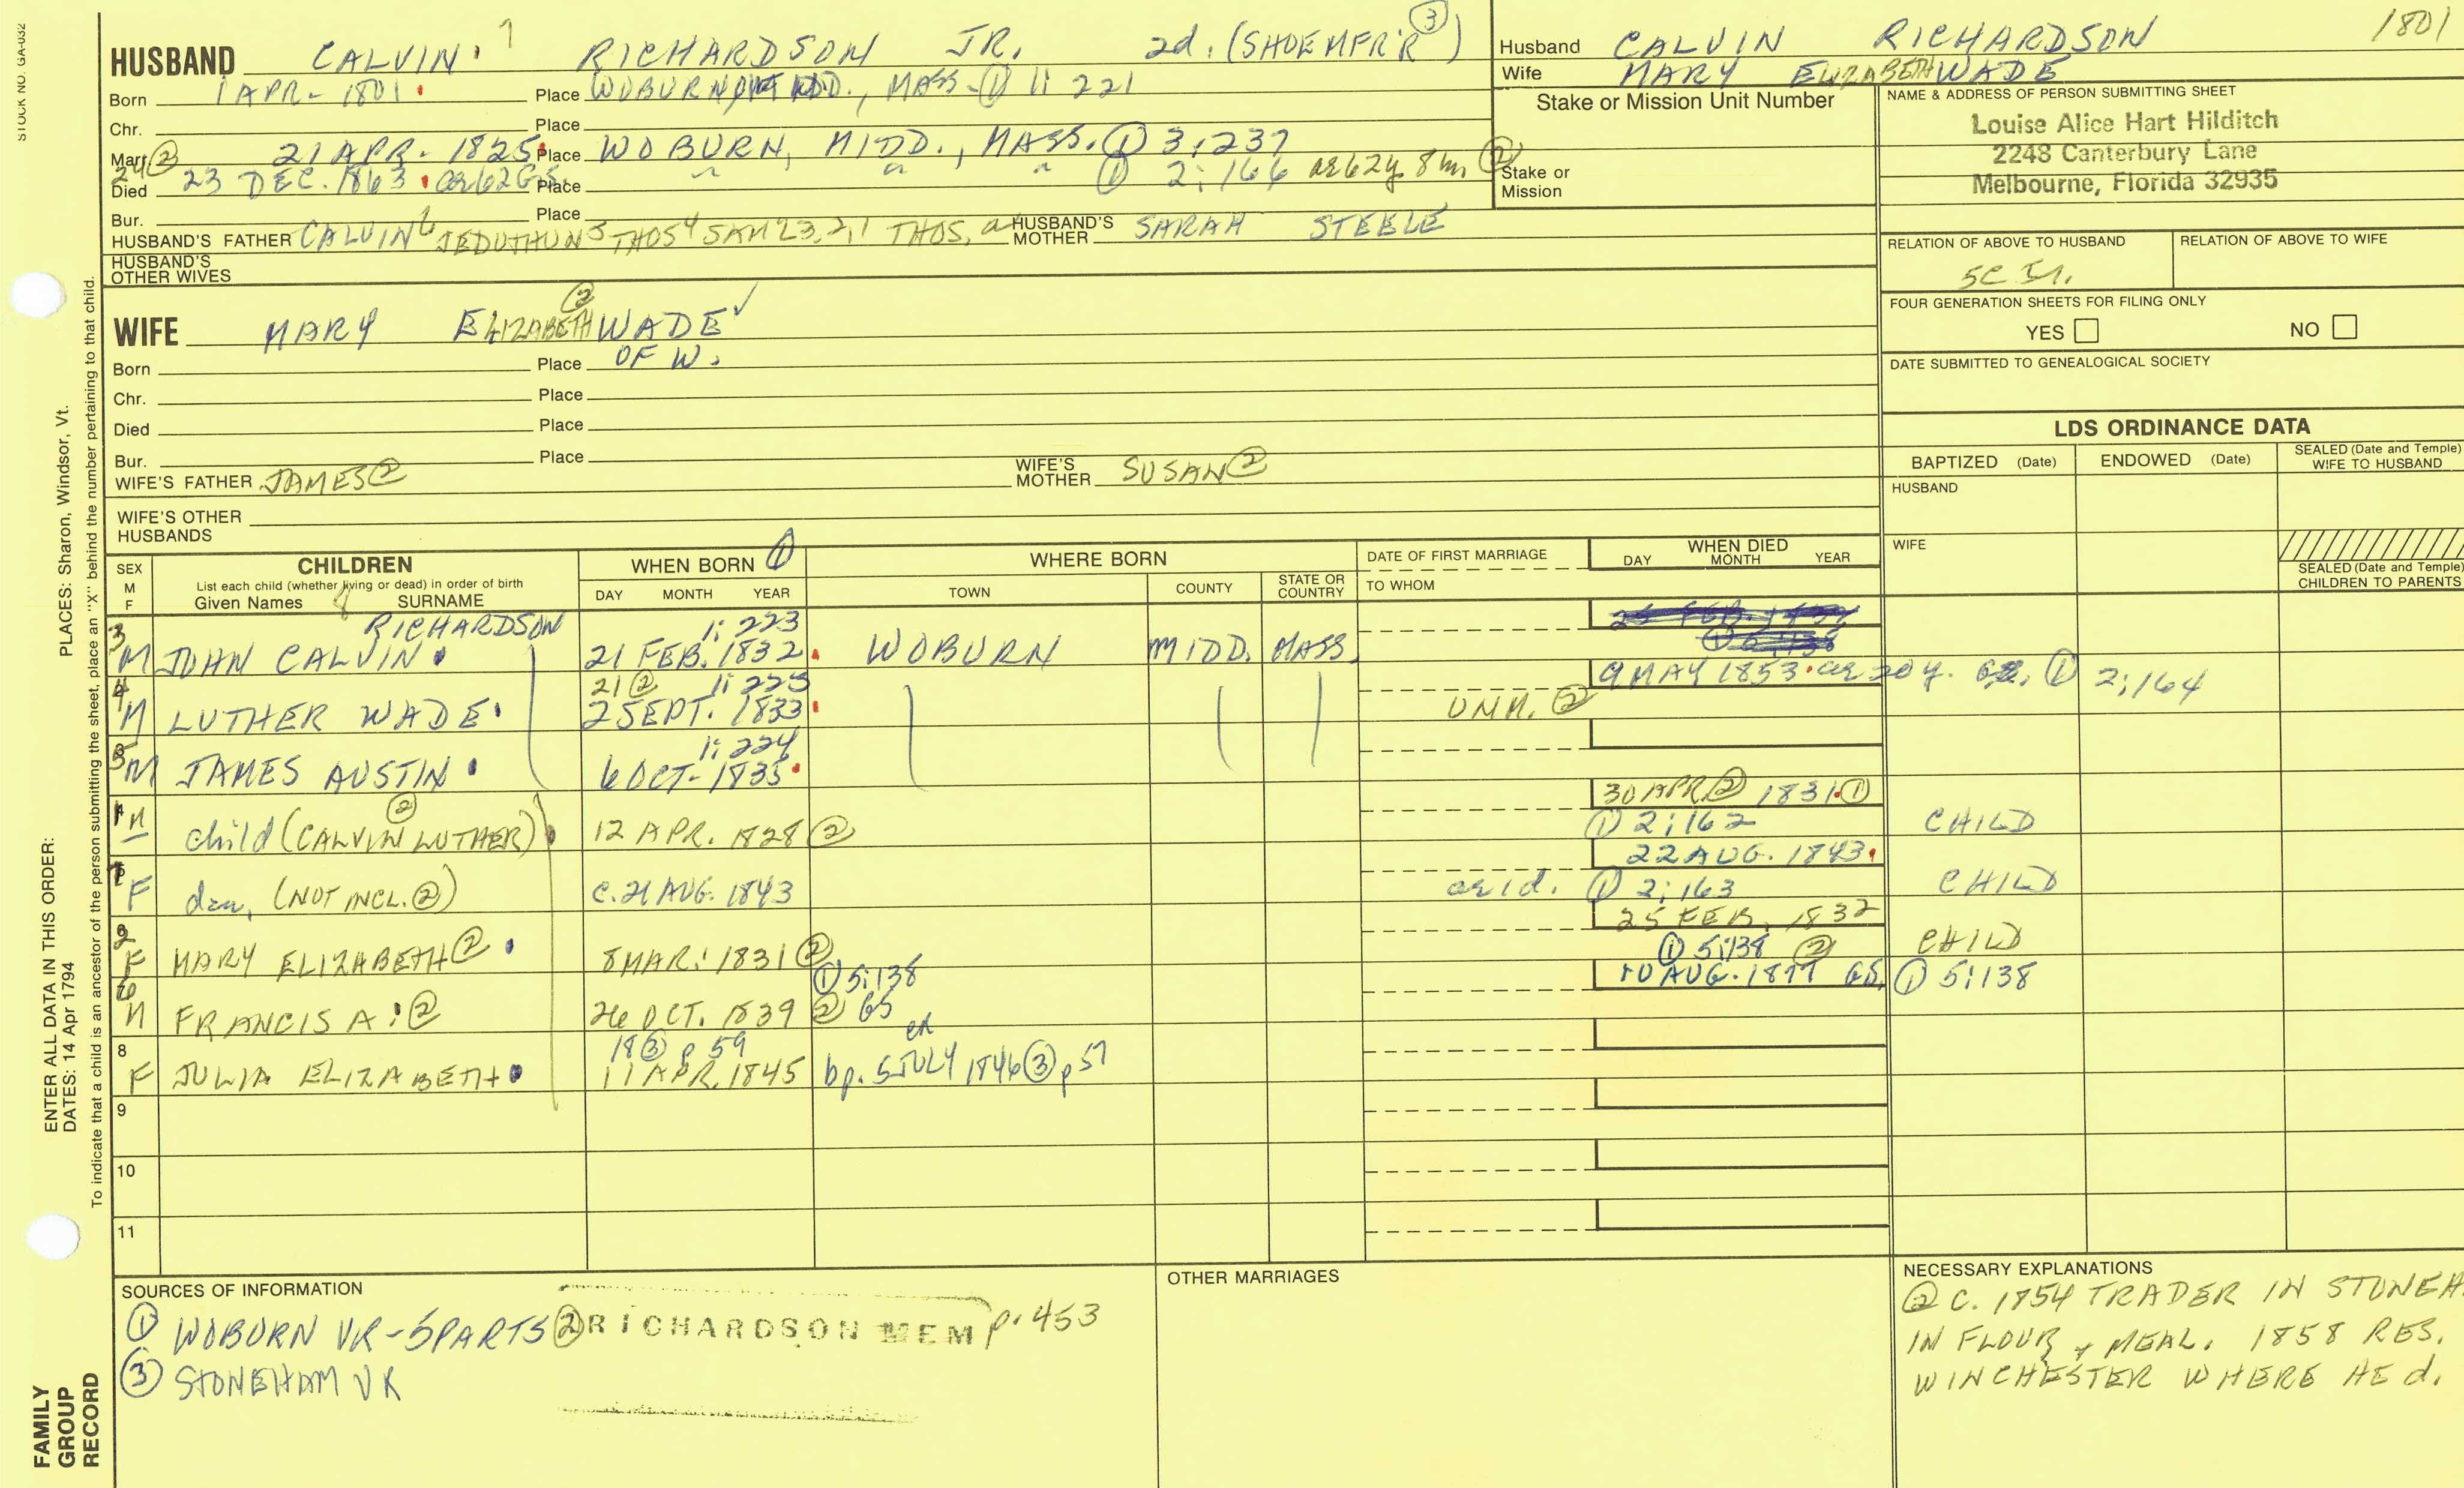 STOCK NO. GA-032
HUSBAND CALVIN 7 RICHARDSON JR. 2d. (SHOEMFR'R ③)
Born 1 APR. 1801 Place WOBURN, MASS. ① 1: 221
Chr. Place
Marr. ② 21 APR. 1825 Place WOBURN, MIDD., MASS. ① 3:237
24② Died 23 DEC. 1863 ae 62 G.S. Place " " " ① 2:166 ae 62y 8m ②
Bur. Place
HUSBAND'S FATHER CALVIN 6 JEDUTHUN 5 THOS 4 SAM'L 3, 2, 1 THOS. HUSBAND'S MOTHER SARAH STEELE
HUSBAND'S OTHER WIVES
WIFE MARY ELIZABETH ② WADE ✓
Born Place OF W.
Chr. Place
Died Place
Bur. Place
WIFE'S FATHER JAMES ② WIFE'S MOTHER SUSAN ②
WIFE'S OTHER HUSBANDS
Husband CALVIN RICHARDSON 1801
Wife MARY ELIZABETH WADE
Stake or Mission Unit Number
Stake or Mission
NAME & ADDRESS OF PERSON SUBMITTING SHEET
Louise Alice Hart Hilditch
2248 Canterbury Lane
Melbourne, Florida 32935
RELATION OF ABOVE TO HUSBAND RELATION OF ABOVE TO WIFE
5C
FOUR GENERATION SHEETS FOR FILING ONLY
YES NO
DATE SUBMITTED TO GENEALOGICAL SOCIETY
LDS ORDINANCE DATA
BAPTIZED (Date) ENDOWED (Date) SEALED (Date and Temple) WIFE TO HUSBAND
HUSBAND
WIFE
SEALED (Date and Temple) CHILDREN TO PARENTS
SEX M F
CHILDREN
List each child (whether living or dead) in order of birth
Given Names 8 SURNAME
WHEN BORN ①
DAY MONTH YEAR
WHERE BORN
TOWN COUNTY STATE OR COUNTRY
DATE OF FIRST MARRIAGE
TO WHOM
WHEN DIED
DAY MONTH YEAR
RICHARDSON 1: 223
3 M JOHN CALVIN 21 FEB. 1832 WOBURN MIDD. MASS.
21② 1: 223 9 MAY 1853 ae 20 y. ① 2:164
4 M LUTHER WADE 2 SEPT. 1833 UNM. ②
1: 224
5 M JAMES AUSTIN 6 OCT. 1835
② 30 APR② 1831 ①
1 M child (CALVIN LUTHER) 12 APR. 1828 ② ① 2:162 CHILD
22 AUG. 1843
7 F dau. (NOT INCL. ②) c. 21 AUG. 1843 ae 1d. ① 2:163 CHILD
25 FEB. 1832
2 F MARY ELIZABETH ② 8 MAR. 1831 ② ① 5:138 ② CHILD
① 5:138 10 AUG. 1877 GS, ① 5:138
6 M FRANCIS A. ② 26 OCT. 1839 ② GS
18③ p 59
8 F JULIA ELIZABETH 11 APR. 1845 bp. 5 JULY 1846 ③ p 57
9
10
11
SOURCES OF INFORMATION
① WOBURN VR-5PARTS ② RICHARDSON MEM p. 453
③ STONEHAM VR
OTHER MARRIAGES
NECESSARY EXPLANATIONS
② C. 1854 TRADER IN STONEH.
IN FLOUR & MEAL. 1858 RES.
WINCHESTER WHERE HE d.
FAMILY GROUP RECORD
ENTER ALL DATA IN THIS ORDER:
DATES: 14 Apr 1794
PLACES: Sharon, Windsor, Vt.
To indicate that a child is an ancestor of the person submitting the sheet, place an "X" behind the number pertaining to that child.